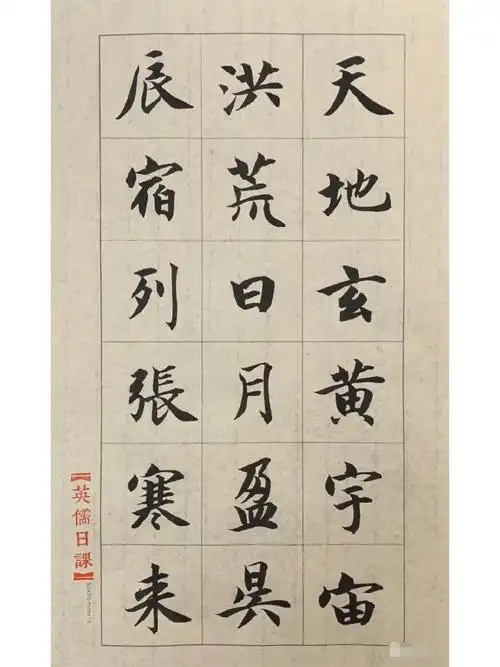 天地玄黄宇宙
洪荒日月盈昃
辰宿列張寒来
【英儒日課】